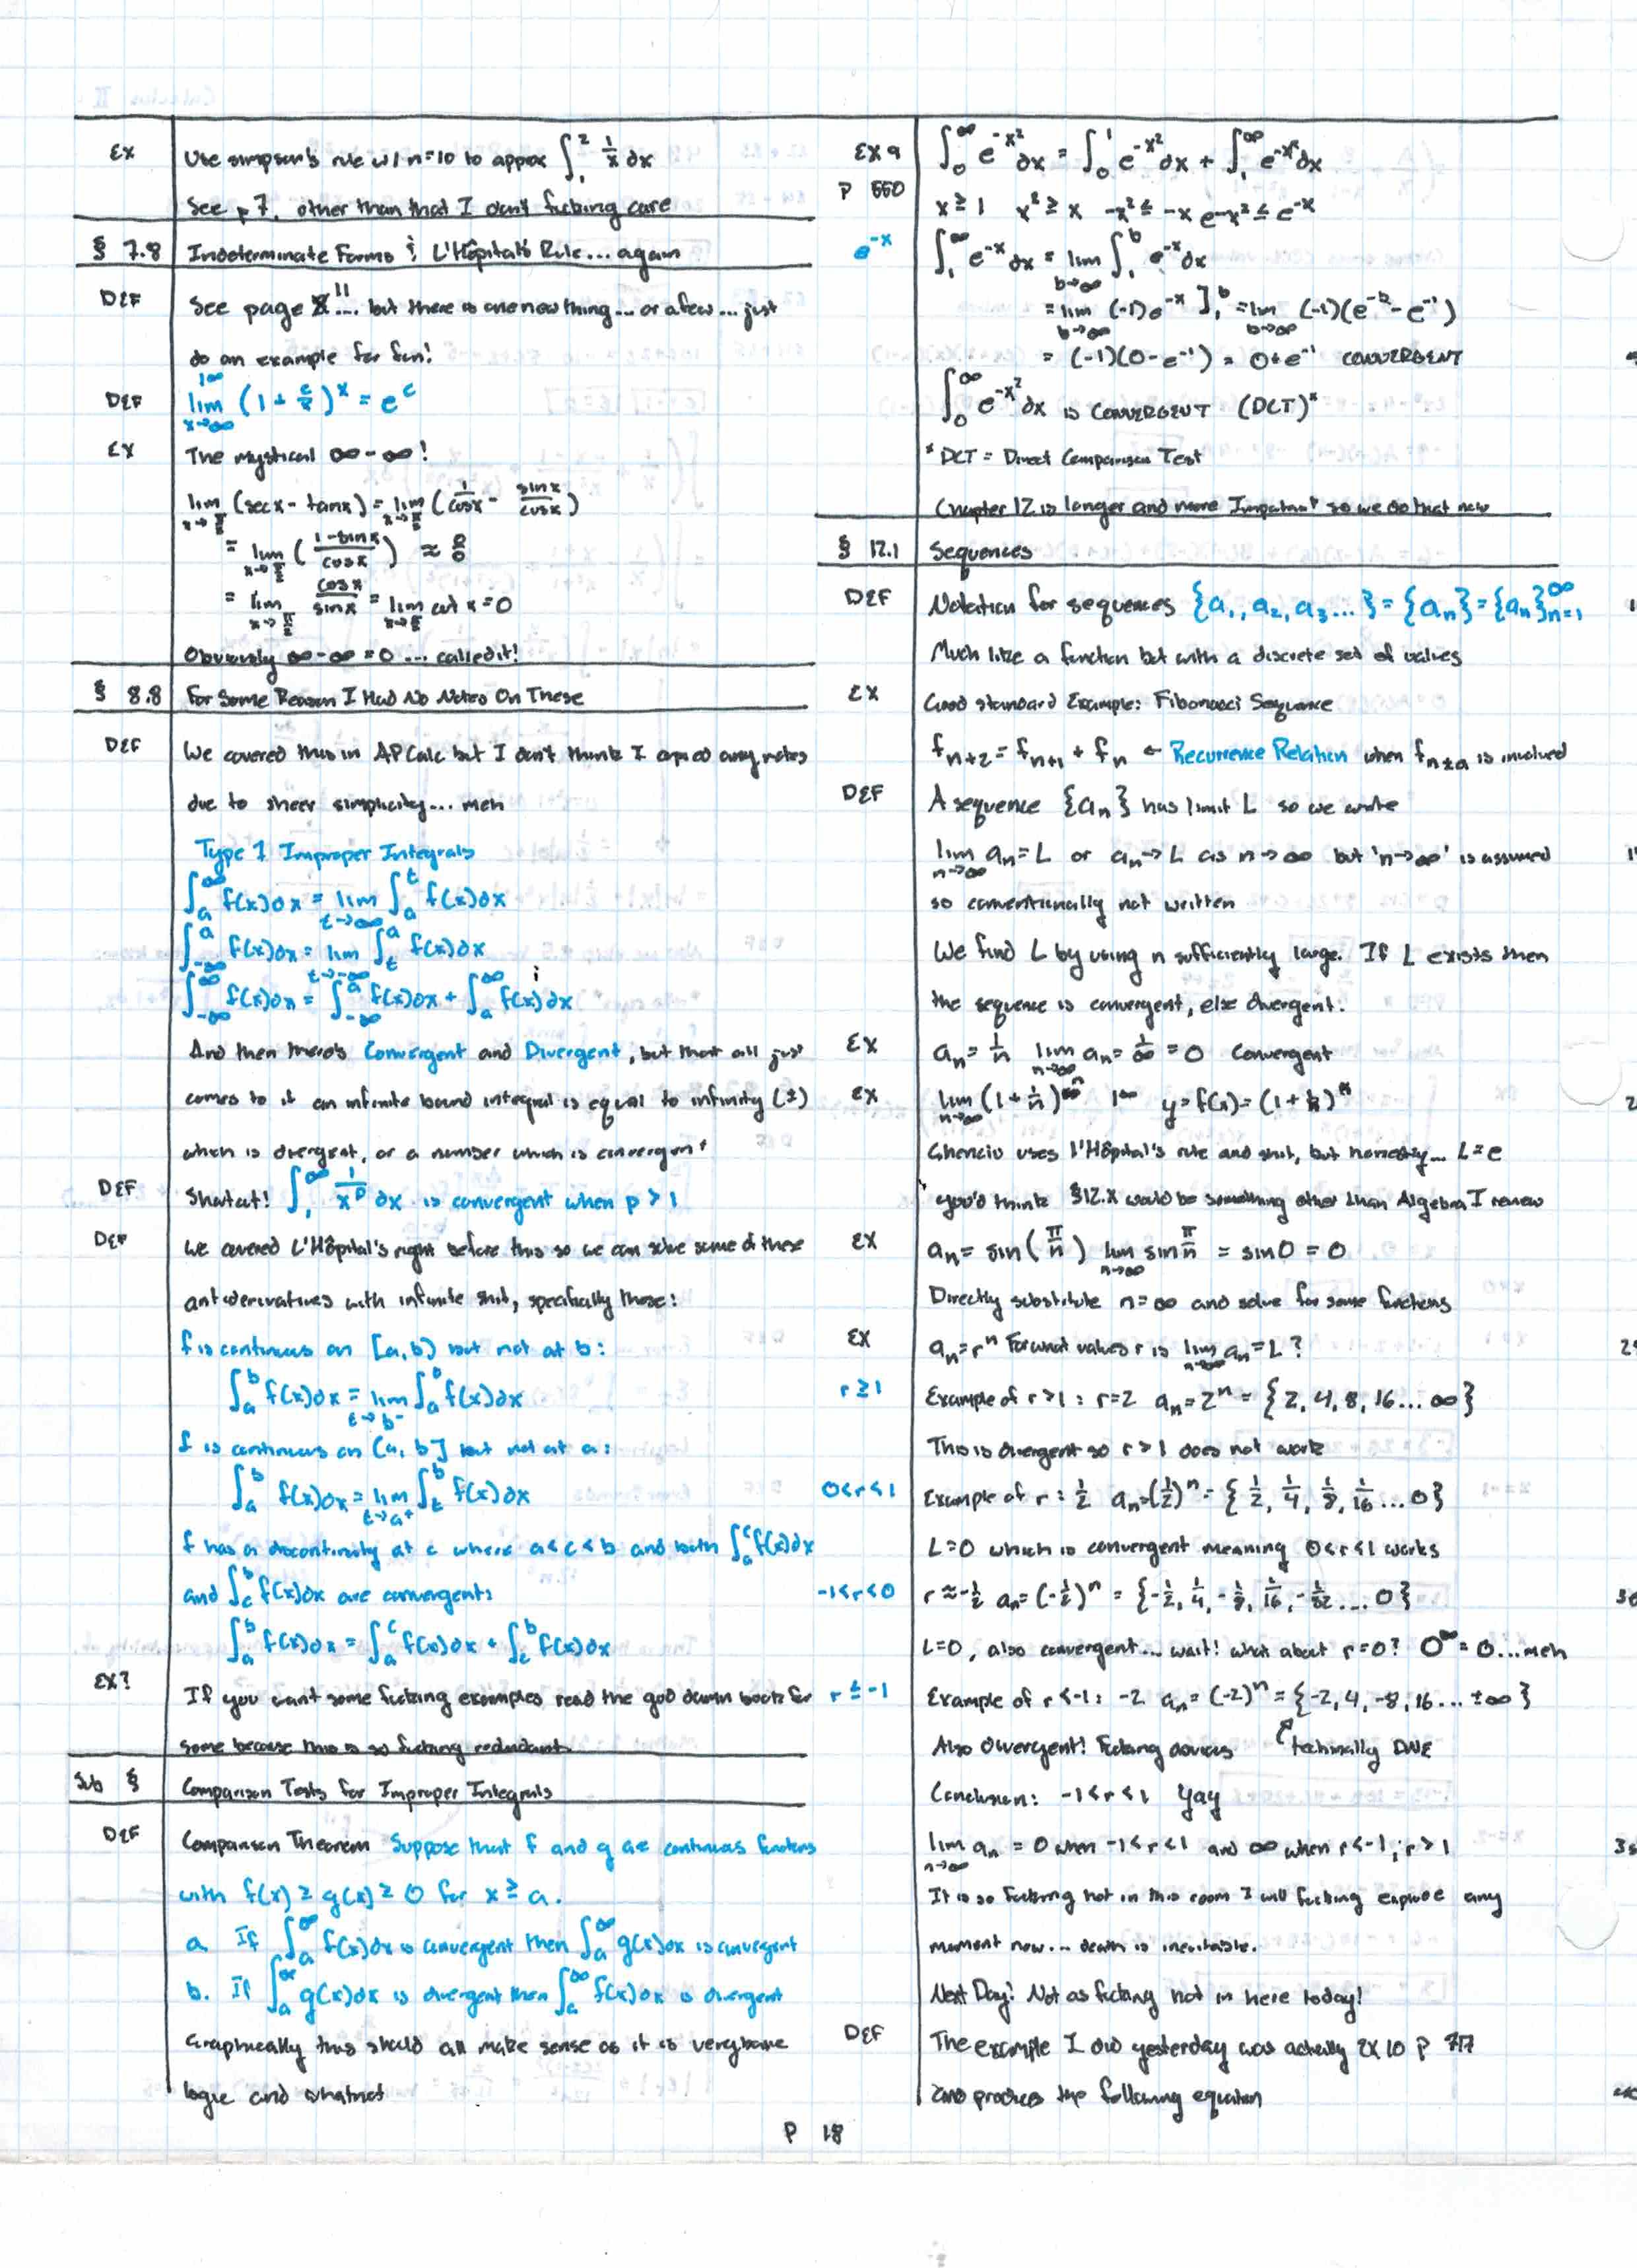 EX Use simpson's rule w/ n=10 to approx ∫₁² 1/x dx
See p 7, other than that I don't fucking care
§ 7.8 Indeterminate Forms & L'Hôpital's Rule... again
DEF See page 11... but there is one new thing... or a few... just
do an example for fun!
1^∞
DEF lim x→∞ (1 + c/x)^x = e^c
EX The mystical ∞-∞!
lim x→π/2 (secx - tanx) = lim x→π/2 (1/cosx - sinx/cosx)
= lim x→π/2 (1-sinx / cosx) ≈ 0/0
= lim x→π/2 cosx/sinx = lim x→π/2 cot x = 0
Obviously ∞-∞=0 ... called it!
§ 8.8 For Some Reason I Had No Notes On These
DEF We covered this in AP Calc but I don't think I copied any notes
due to sheer simplicity... meh
Type 1 Improper Integrals
∫ₐ^∞ f(x)dx = lim t→∞ ∫ₐ^t f(x)dx
∫₋∞^a f(x)dx = lim t→-∞ ∫ₜ^a f(x)dx
∫₋∞^∞ f(x)dx = ∫₋∞^a f(x)dx + ∫ₐ^∞ f(x)dx
And then there's Convergent and Divergent, but that all just
comes to if an infinite bound integral is equal to infinity (±)
which is divergent, or a number which is convergent
DEF Shortcut! ∫₁^∞ 1/x^p dx is convergent when p > 1
DEF We covered L'Hôpital's right before this so we can solve some of these
antiderivatives with infinite shit, specifially these:
f is continuous on [a,b) but not at b:
∫ₐ^b f(x)dx = lim t→b⁻ ∫ₐ^b f(x)dx
f is continuous on (a,b] but not at a:
∫ₐ^b f(x)dx = lim t→a⁺ ∫ₜ^b f(x)dx
f has a discontinuity at c where a<c<b and both ∫ₐ^c f(x)dx
and ∫c^b f(x)dx are convergent:
∫ₐ^b f(x)dx = ∫ₐ^c f(x)dx + ∫c^b f(x)dx
EX? If you want some fucking examples read the god damn book for
some because this is so fucking redundant.
Sub § Comparison Tests for Improper Integrals
DEF Comparison Theorem Suppose that f and g are continuous functions
with f(x) ≥ g(x) ≥ 0 for x ≥ a.
a. If ∫ₐ^∞ f(x)dx is convergent then ∫ₐ^∞ g(x)dx is convergent
b. If ∫ₐ^∞ g(x)dx is divergent then ∫ₐ^∞ f(x)dx is divergent
Graphically this should all make sense as it is very basic
logic and whatnot
EX 9 ∫₀^∞ e^-x² dx = ∫₀^1 e^-x² dx + ∫₁^∞ e^-x² dx
P 550 x ≥ 1 x² ≥ x -x² ≤ -x e^-x² ≤ e^-x
e^-x ∫₁^∞ e^-x dx = lim b→∞ ∫₁^b e^-x dx
= lim b→∞ (-1)e^-x ]₁^b = lim b→∞ (-1)(e^-b - e^-1)
= (-1)(0-e^-1) = 0+e^-1 CONVERGENT
∫₀^∞ e^-x² dx is CONVERGENT (DCT)*
* DCT = Direct Comparison Test
Chapter 12 is longer and more Important so we do that now
§ 12.1 Sequences
DEF Notation for sequences {a₁, a₂, a₃ ...} = {aₙ} = {aₙ}^∞ n=1
Much like a function but with a discrete set of values
EX Good standard Example: Fibonacci Sequence
fₙ₊₂ = fₙ₊₁ + fₙ ← Recurrence Relation when fₙ±ₐ is involved
DEF A sequence {aₙ} has limit L so we write
lim n→∞ aₙ = L or aₙ→L as n→∞ but 'n→∞' is assumed
so conventionally not written
We find L by using n sufficiently large. If L exists then
the sequence is convergent, else divergent.
EX aₙ = 1/n lim n→∞ aₙ = 1/∞ = 0 Convergent
EX lim n→∞ (1 + 1/n)^n 1^∞ y = f(x) = (1 + 1/x)^x
Ghenciu uses l'Hôpital's rule and shit, but honestly... L=e
you'd think §12.X would be something other than Algebra I review
EX aₙ = sin(π/n) lim n→∞ sin π/n = sin0 = 0
Directly substitute n=∞ and solve for some functions
EX aₙ = rⁿ For what values r is lim n→∞ aₙ = L?
r ≥ 1 Example of r > 1: r=2 aₙ = 2ⁿ = {2, 4, 8, 16 ... ∞}
This is divergent so r > 1 does not work
0<r<1 Example of r = 1/2 aₙ = (1/2)ⁿ = {1/2, 1/4, 1/8, 1/16 ... 0}
L=0 which is convergent meaning 0<r<1 works
-1<r<0 r ≈ -1/2 aₙ = (-1/2)ⁿ = {-1/2, 1/4, -1/8, 1/16, -1/32 ... 0}
L=0, also convergent... wait! what about r=0? 0^∞ = 0... meh
r ≤ -1 Example of r < -1: -2 aₙ = (-2)ⁿ = {-2, 4, -8, 16 ... ±∞}
Also Divergent! Fucking obvious technically DNE
Conclusion: -1 < r < 1 Yay
lim n→∞ aₙ = 0 when -1<r<1 and ∞ when r<-1; r>1
It is so fucking hot in this room I will fucking explode any
moment now... death is inevitable.
Next Day! Not as fucking hot in here today!
DEF The example I did yesterday was actually EX 10 P 717
and produces the following equation
P 18